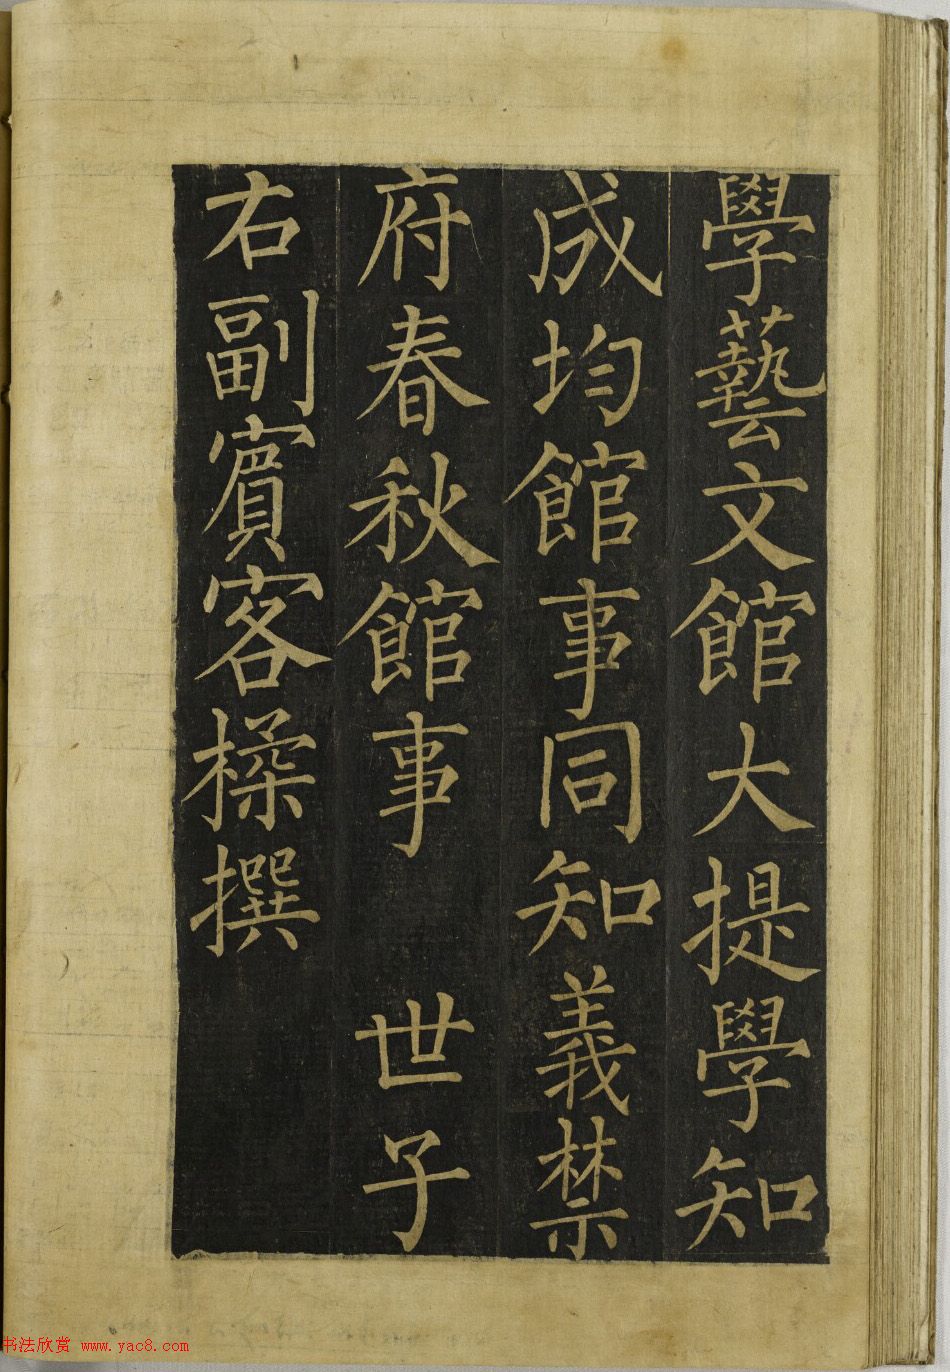 學藝文館大提學知
成均館事同知義禁
府春秋館事 世子
右副賓客㯶撰
书法欣赏 www.yac8.com